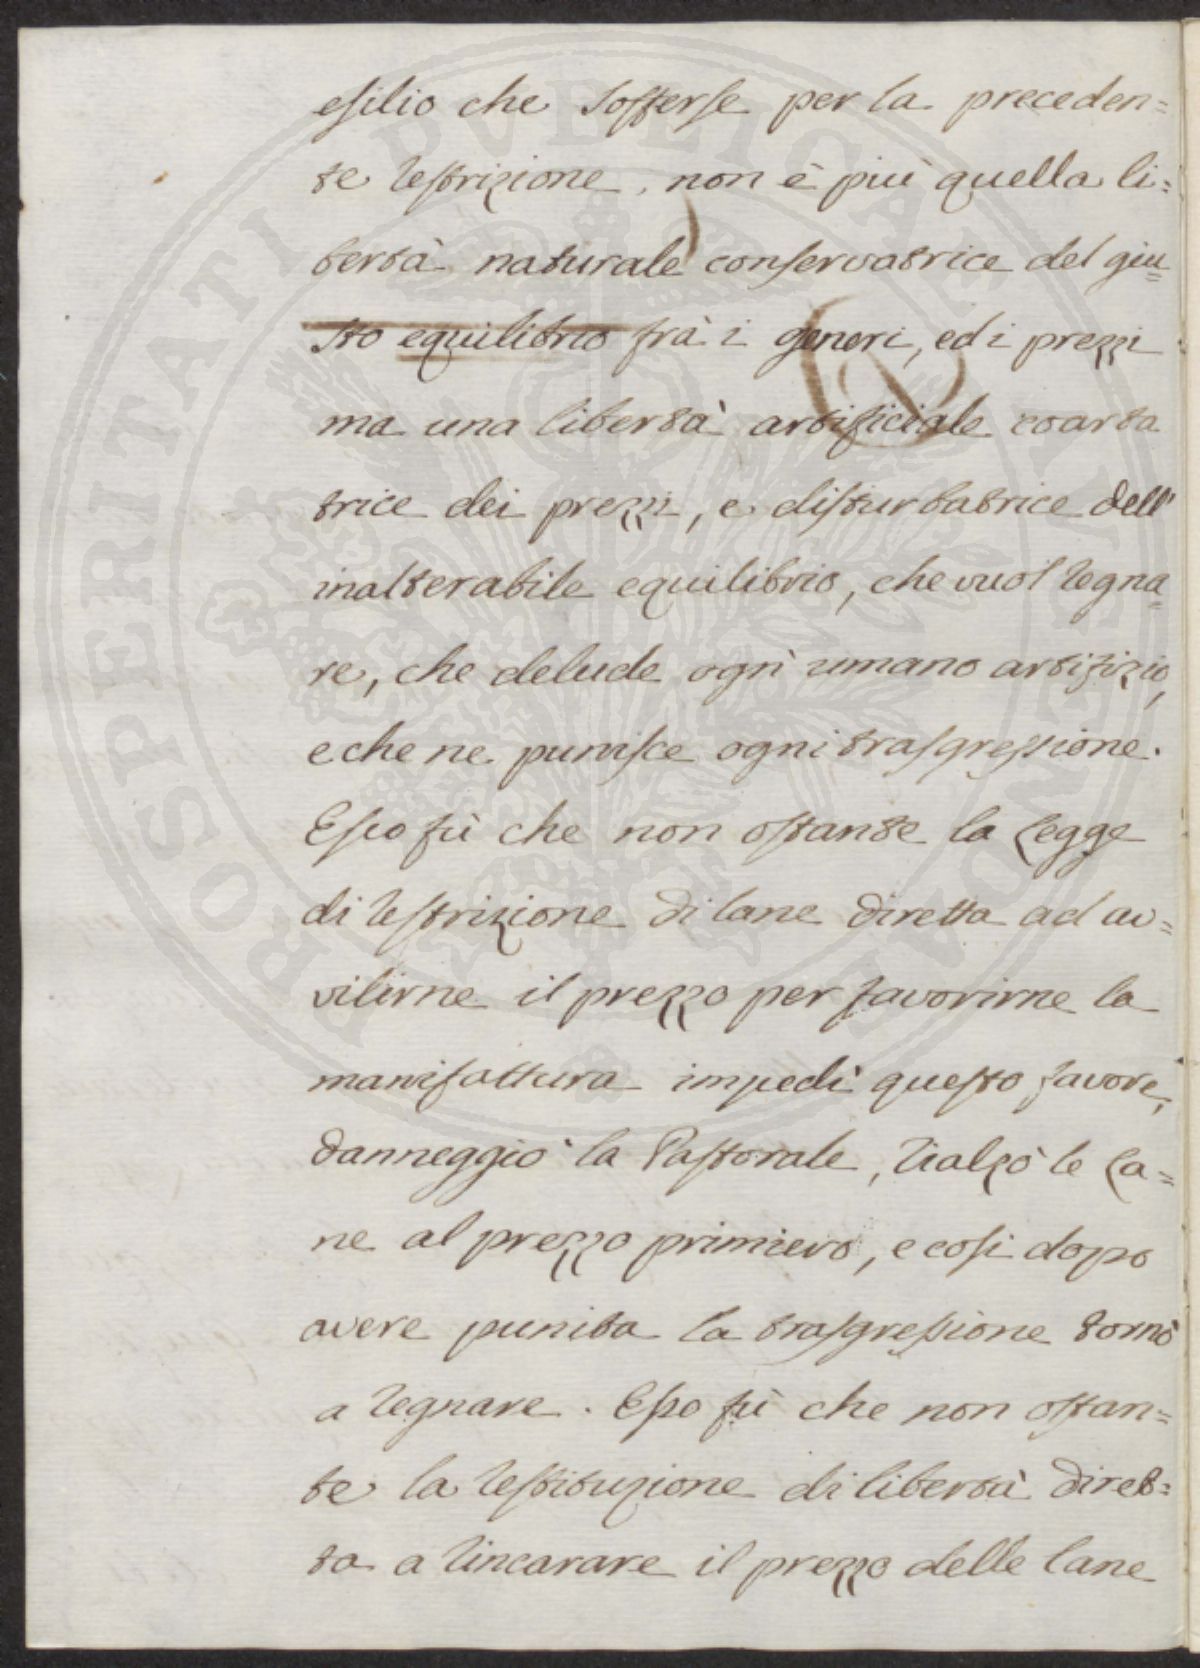 esilio che sofferse per la preceden=
te restrizione, non è più quella li=
bertà naturale conservatrice del giu=
sto equilibrio frà i generi, ed i prezzi
ma una libertà artificiale coarta
trice dei prezzi, e disturbatrice dell'
inalterabile equilibrio, che vuol regna=
re, che delude ogni umano artifizio,
e che ne punisce ogni trasgressione.
Esso fù che non ostante la Legge
di restrizione di lane diretta ad av=
vilirne il prezzo per favorirne la
manifattura impedì questo favore,
danneggiò la Pastorale, rialzò le La=
ne al prezzo primiero, e così dopo
avere punita la trasgressione tornò
a regnare. Esso fù che non ostan=
te la restituzione di libertà diret=
ta a rincarare il prezzo delle lane
PROSPERITATI PVBLICAE AVGENDAE